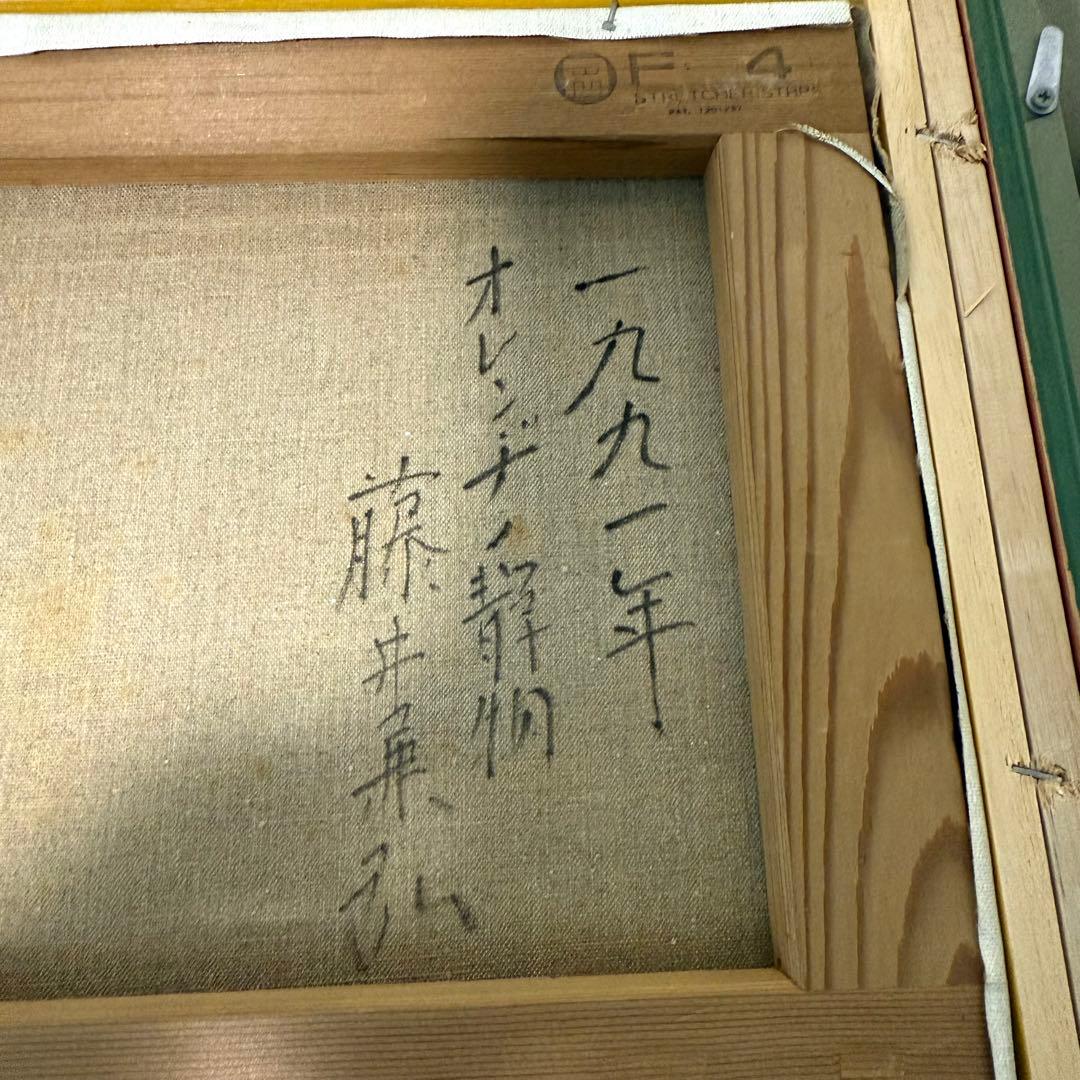 F 4
STRETCHER
PAT.
一九九一年
オレンヂノ静物
藤井弘